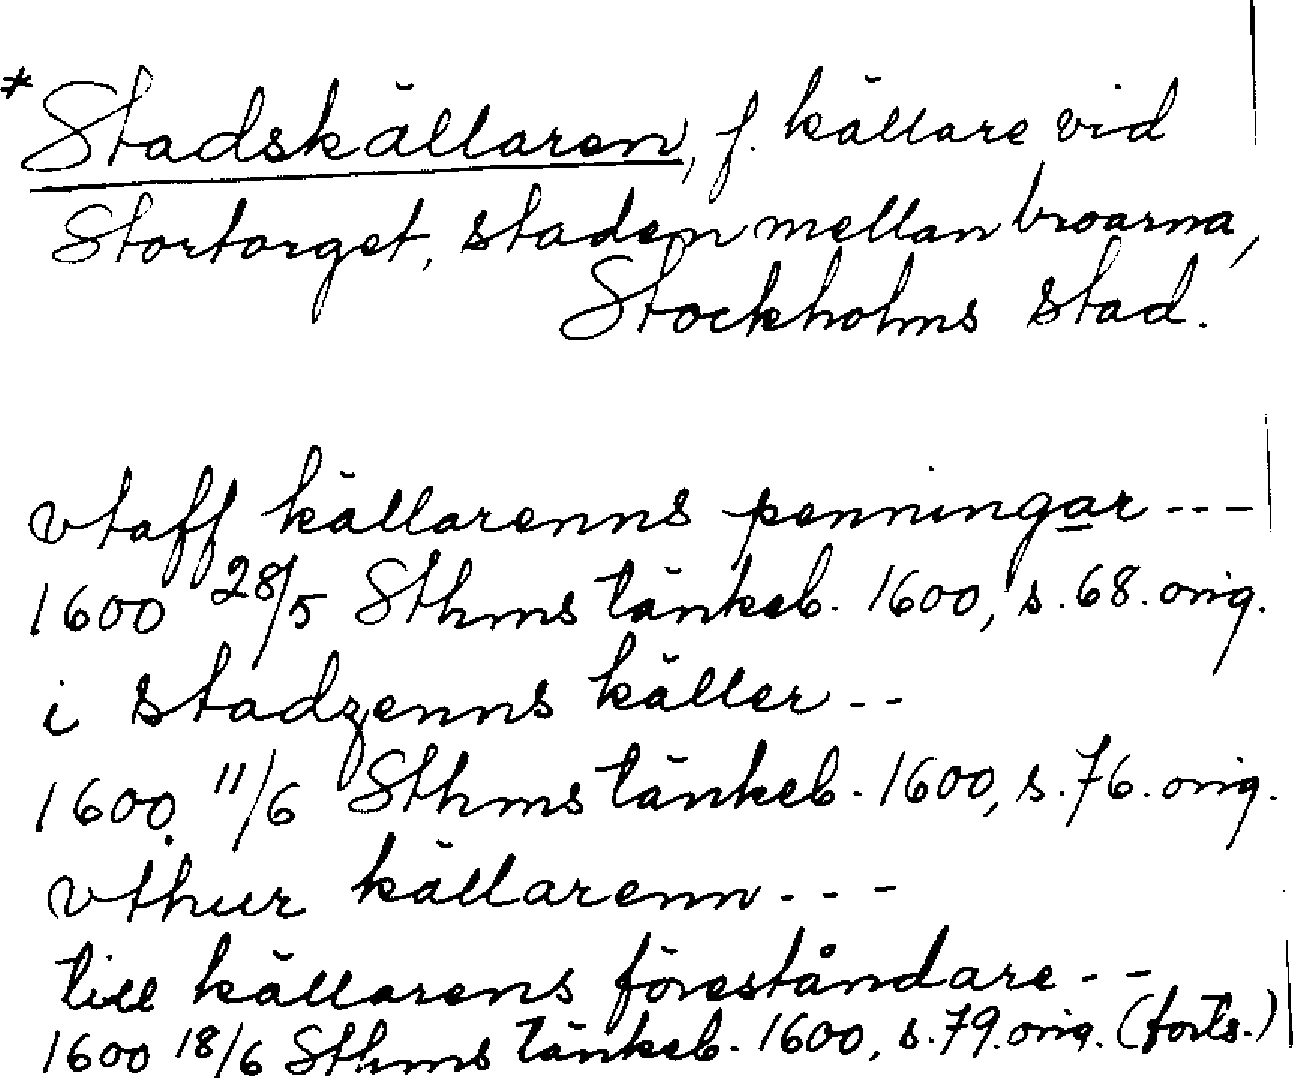 *Stadskällaren, f. källare vid
Stortorget, staden mellan broarna,
Stockholms stad.
vtaff källarenns penningar ---
1600 28/5 Sthms tänkeb. 1600, s. 68. orig.
i stadzenns käller --
1600. 11/6 Sthms tänkeb. 1600, s. 76. orig.
vthur källarenn ---
till källarens föreståndare --
1600 18/6 Sthms tänkeb. 1600, s. 79. orig. (forts.)